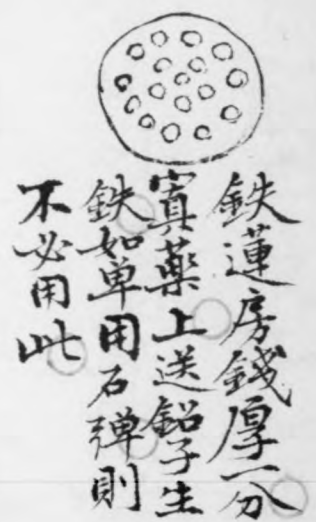 鉄蓮房錢厚一分
寘藥上送鉛子生
鉄如单用石弹則
不必用此